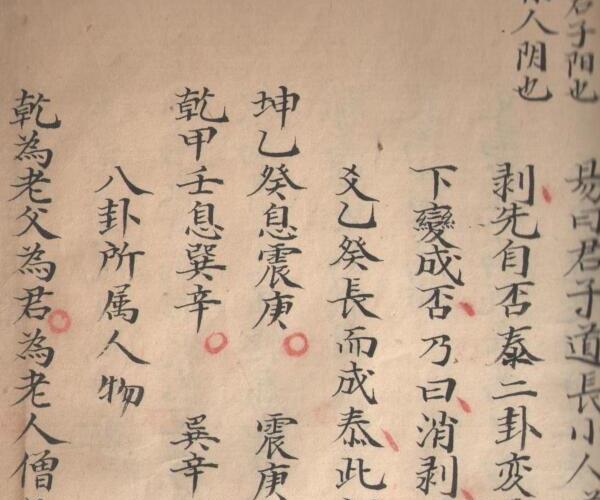 君子阳也
人阴也
易曰君子道長小人
剥先自否泰二卦变
下變成否乃曰消剥
爻乙癸長而成泰此
坤乙癸息震庚 震庚
乾甲壬息巽辛 巽辛
八卦所属人物
乾為老父為君為老人僧